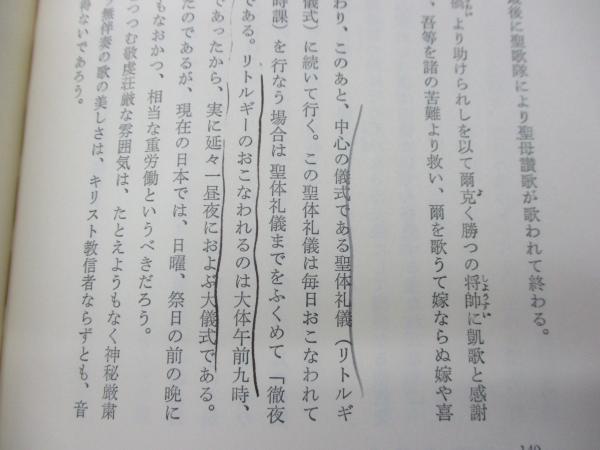 最後に聖歌隊により聖母讃歌が歌われて終わる。
より助けられしを以て爾克く勝つの将帥に凱歌と感謝
、吾等を諸の苦難より救い、爾を歌うて嫁ならぬ嫁や喜
わり、このあと、中心の儀式である聖体礼儀（リトルギ
儀式）に続いて行く。この聖体礼儀は毎日おこなわれて
時課）を行なう場合は聖体礼儀までをふくめて「徹夜
である。リトルギーのおこなわれるのは大体午前九時、
であったから、実に延々一昼夜におよぶ大儀式である。
たのであるが、現在の日本では、日曜、祭日の前の晩に
もなおかつ、相当な重労働というべきだろう。
つつむ敬虔荘厳な雰囲気は、たとえようもなく神秘厳粛
無伴奏の歌の美しさは、キリスト教信者ならずとも、音
得ないであろう。